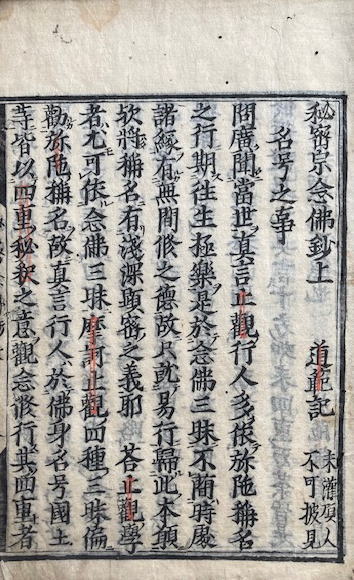 秘密宗念佛鈔上
道範記
未灌頂人
不可披見
名号之事
問廣聞當世真言止觀行人多依弥陁稱名
之行期往生極樂是於念佛三昧不簡時處
諸緣有無間修之德故只就易行歸此本願
欤將稱名有淺深顕密之義耶 答止觀學
者尤可依念佛三昧摩訶止觀四種三昧倫
勸弥陁稱名故真言行人於佛身名号國土
等皆以四重秘釈之意觀念修行其四重者